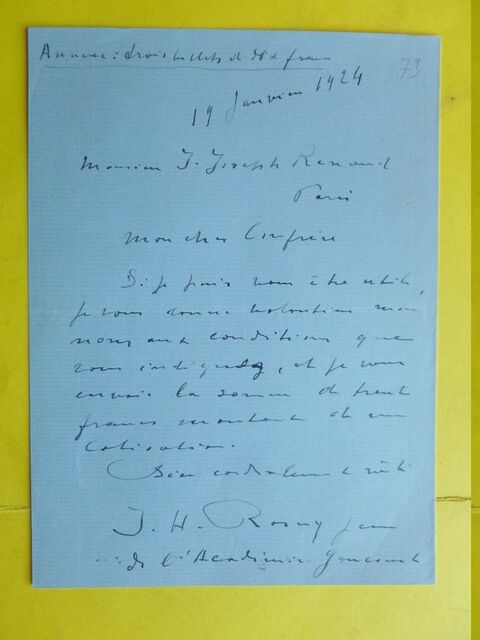 Annexe : trois billets de dix francs
73
19 Janvier 1924
Monsieur J. Joseph Renaud
Paris
Mon cher Confrère
Si je puis vous être utile,
je vous donne volontiers mon
nom aux conditions que
vous indiquez, et je vous
envoie la somme de trente
francs montant de ma
cotisation.
Bien cordialement vôtre
J. H. Rosny jeune
de l'Académie Goncourt